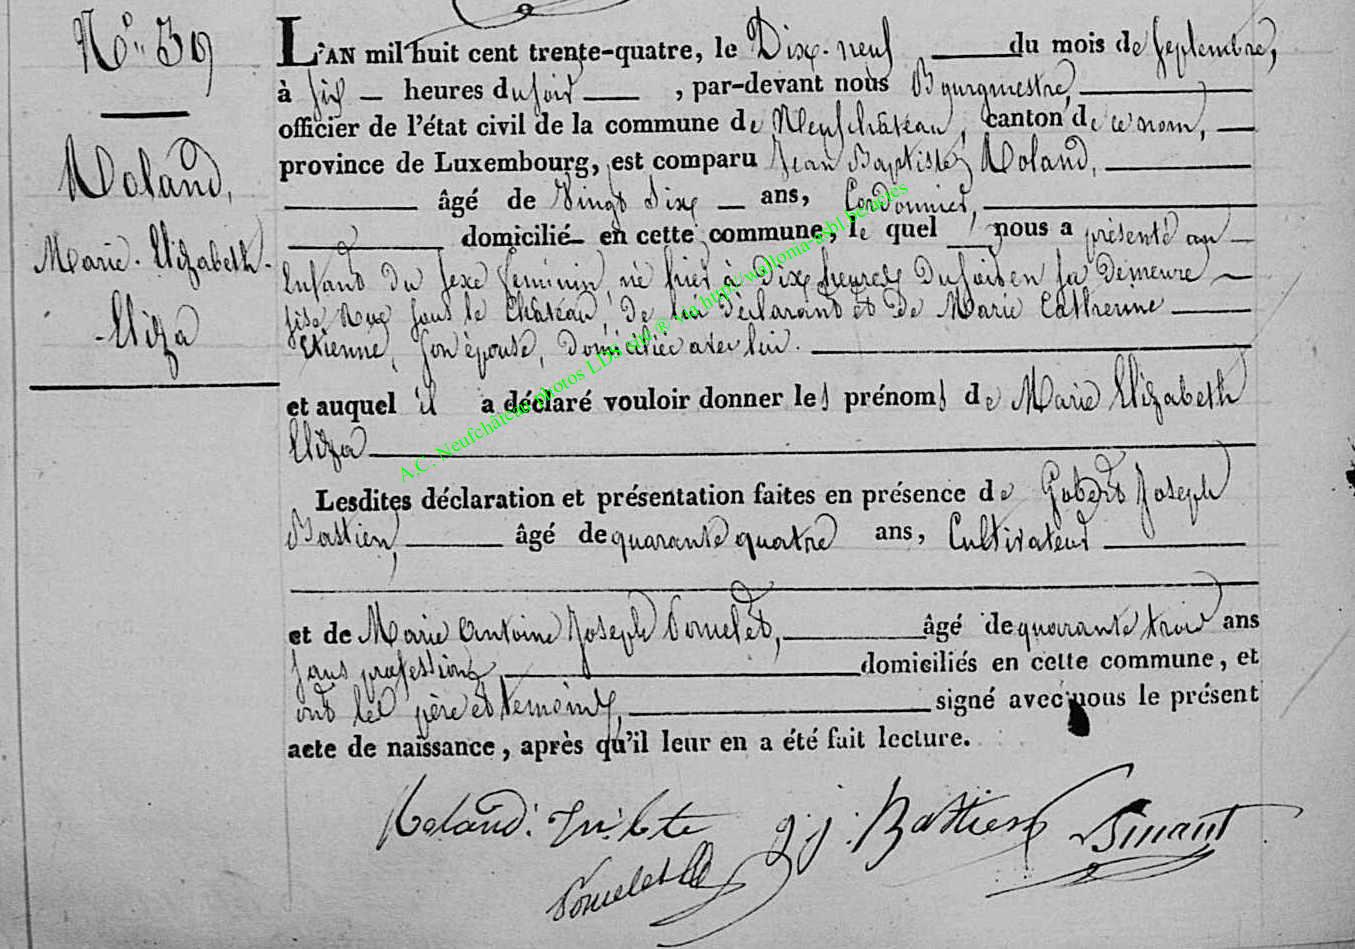 N° 39
Roland,
Marie Elizabeth
Eliza
L'AN mil huit cent trente-quatre, le Dix-neuf du mois de septembre,
à six heures du soir, par-devant nous Bourgmestre,
officier de l'état civil de la commune de Neufchâteau, canton de ce nom,
province de Luxembourg, est comparu Jean Baptiste Roland,
âgé de Vingt Six ans, Cordonnier,
domicilié en cette commune, le quel nous a présenté un
Enfant du sexe féminin, né hier à Dix heures Du soir en sa Demeure
sise Rue sous le Château, De lui Déclarant et De Marie Catherine
Etienne, son épouse, Domiciliée avec lui.
et auquel il a déclaré vouloir donner les prénoms de Marie Elizabeth
Eliza
Lesdites déclaration et présentation faites en présence de Gobert Joseph
Bastien, âgé de quarante quatre ans, Cultivateur
et de Marie Antoine Joseph Pomelet, âgé de quarante trois ans
sans profession, domiciliés en cette commune, et
ont les père et témoins, signé avec nous le présent
acte de naissance, après qu'il leur en a été fait lecture.
Roland. g. j. Bastien
A.C. Neufchâteau photos LDS via http://wallonia-asbl.be/actes